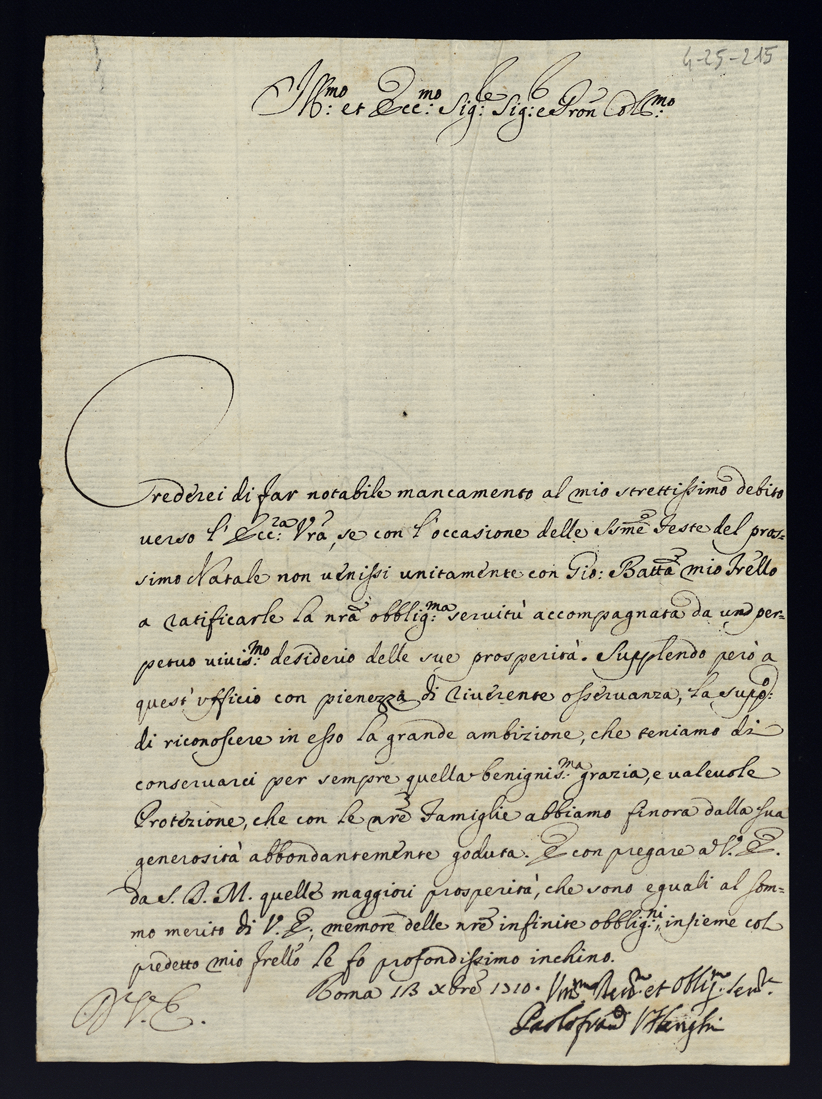 4-25-215
Ill:mo et Ecc:mo Sig:re Sig:re e Pron Col:mo
Crederei di far notabile mancamento al mio strettissimo debito
verso l'Ecc:za Vra, se con l'occasione delle Ssme Feste del pros=
simo Natale non venissi unitamente con Gio: Batta mio Frello
a ratificarle la nra obblig:ma servitù accompagnata da un per=
petuo vivis:mo desiderio delle sue prosperità. Supplendo però a
quest'ufficio con pienezza di riverente osservanza, la supp:co
di riconoscere in esso la grande ambizione, che teniamo di
conservarci per sempre quella benignis:ma grazia, e valevole
Protezione, che con le nre Famiglie abbiamo finora dalla sua
generosità abbondantemente goduta. E con pregare a V. E.
da S. D. M. quelle maggiori prosperità, che sono eguali al som=
mo merito di V. E; memore delle nre infinite obblig:ni, insieme col
predetto mio frello le fo profondissimo inchino.
Roma 13 Xbre 1710. et Obblig:
D. V. E.